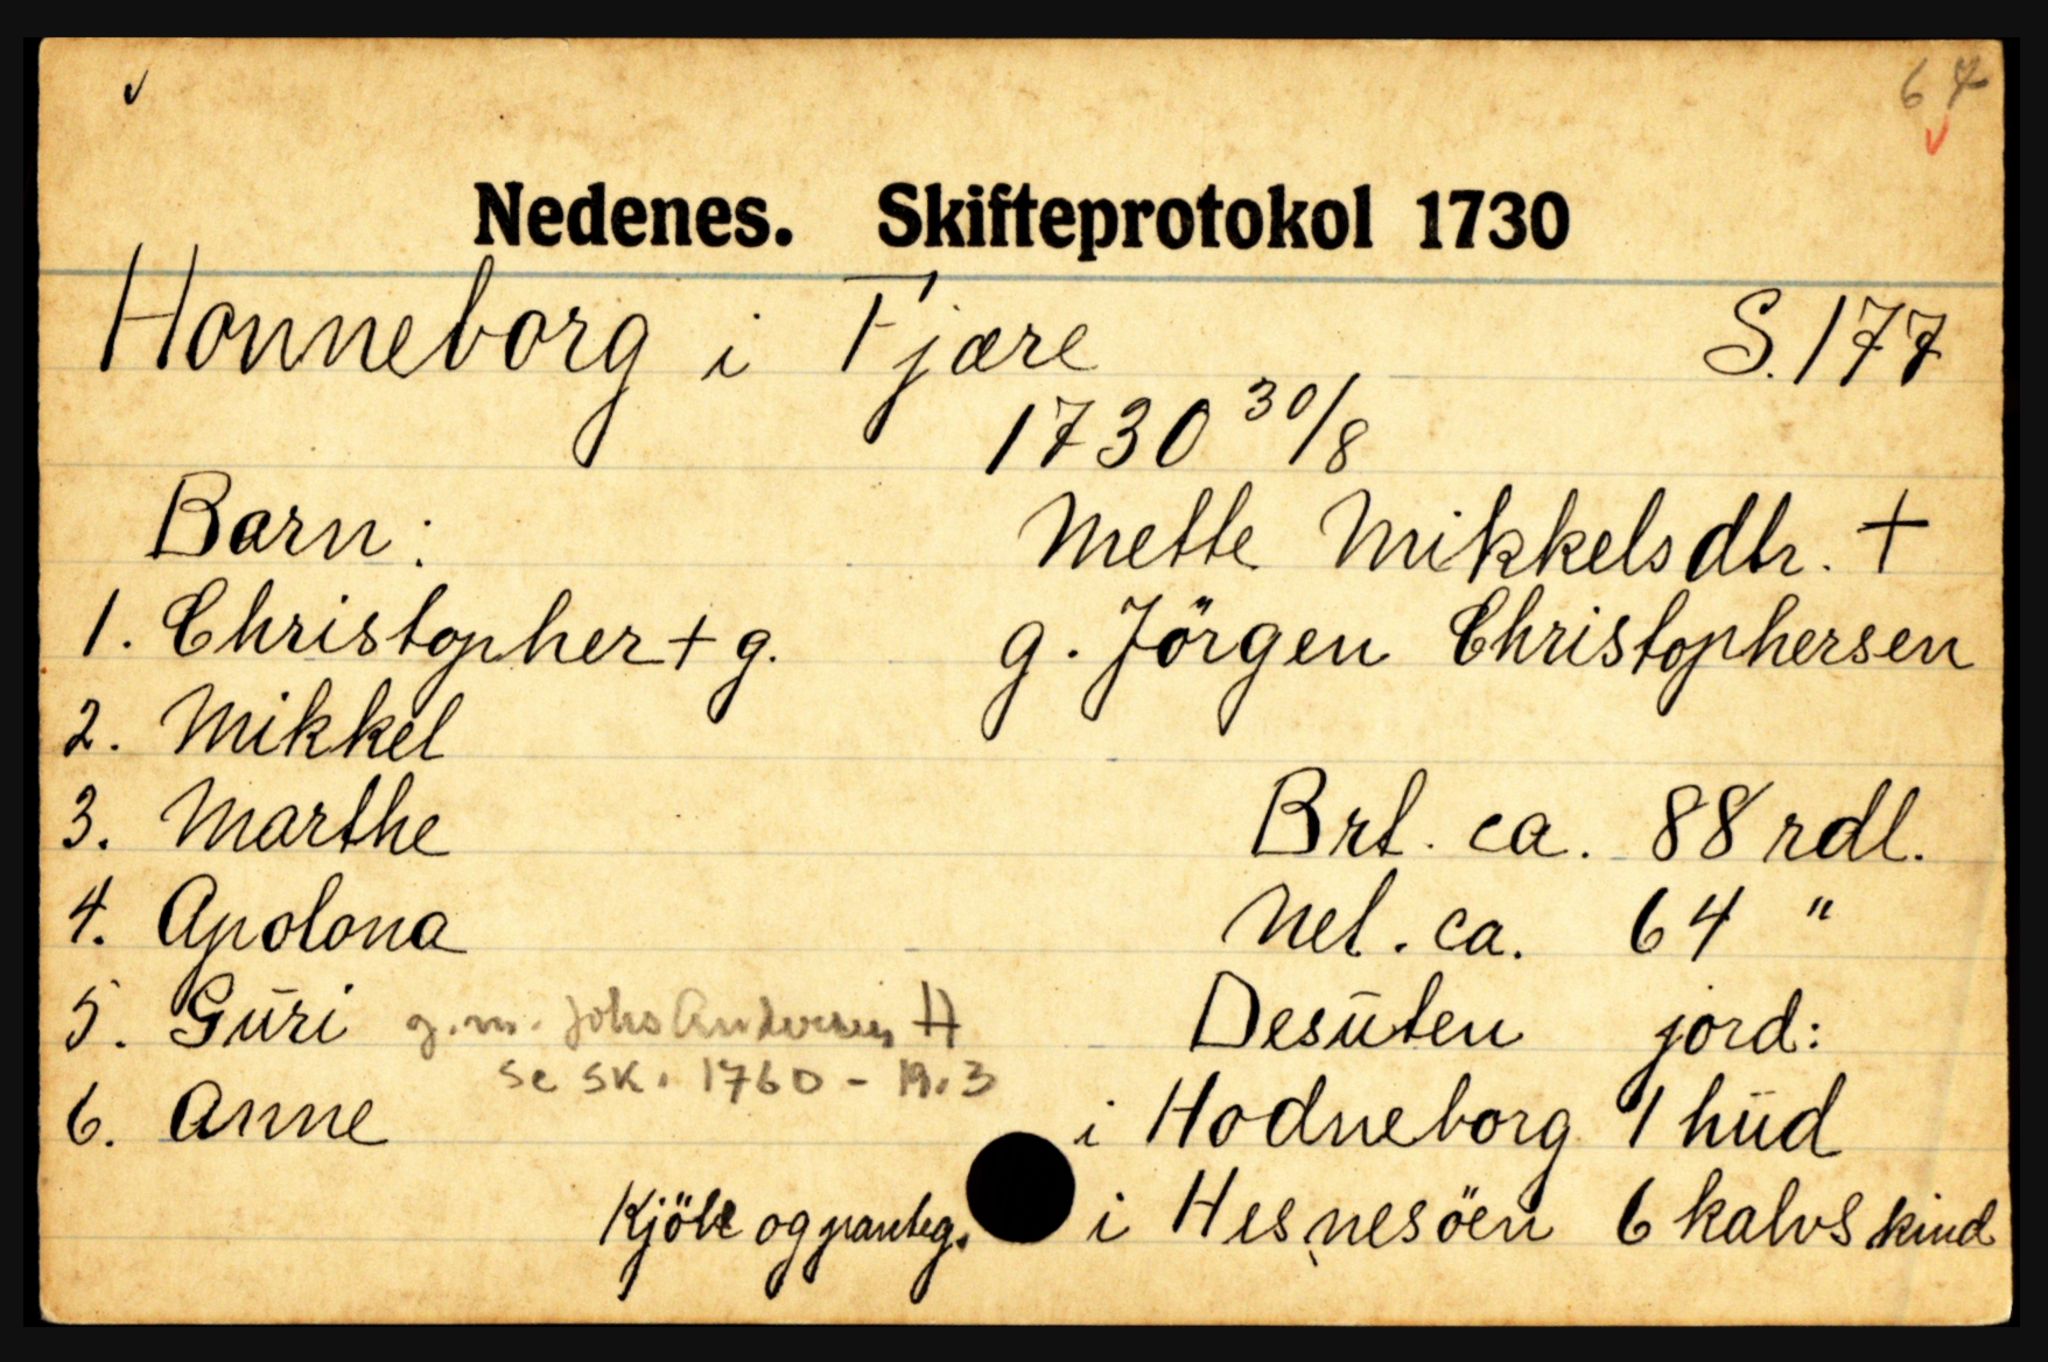 64
Nedenes. Skifteprotokol 1730
Honneborg i Fjære S. 177
1730 30/8
Barn: Mette Mikkelsdtr. +
1. Christopher + g. g. Jörgen Christophersen
2. Mikkel
3. Marthe Brt. ca. 88 rdl.
4. Apolona Net. ca. 64 "
5. Gūri g.m. Johs Andersen H Desūten jord:
se sk. 1760 - 19.3
6. Anne i Hodneborg 1 hūd
Kjöbe og panteg. i Hesnesöen 6 kalvskind